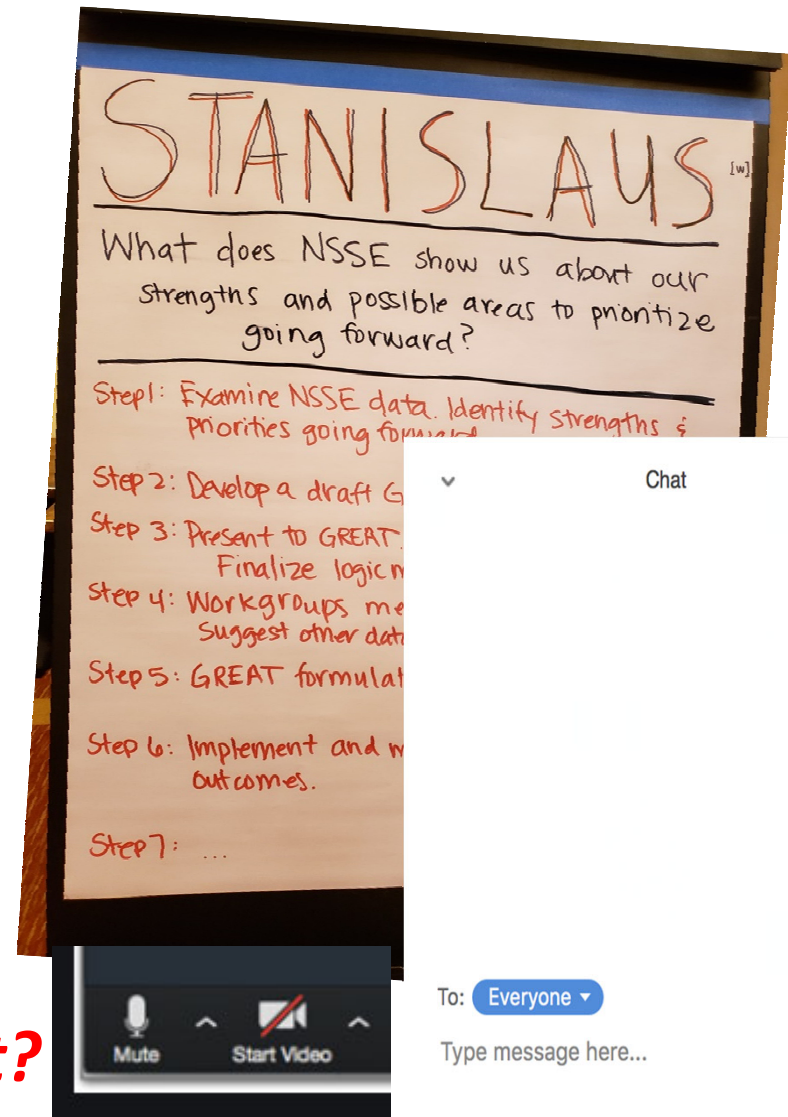 STANISLAUS
[w]
What does NSSE show us about our
strengths and possible areas to prioritize
going forward?
Step 1: Examine NSSE data. Identify strengths &
priorities going forward
Step 2: Develop a draft G
Step 3: Present to GREAT.
Finalize logic m
Step 4: Workgroups me
Suggest other data
Step 5: GREAT formulat
Step 6: Implement and m
outcomes.
Step 7: ...
Chat
To: Everyone
Type message here...
Mute
Start Video
t?